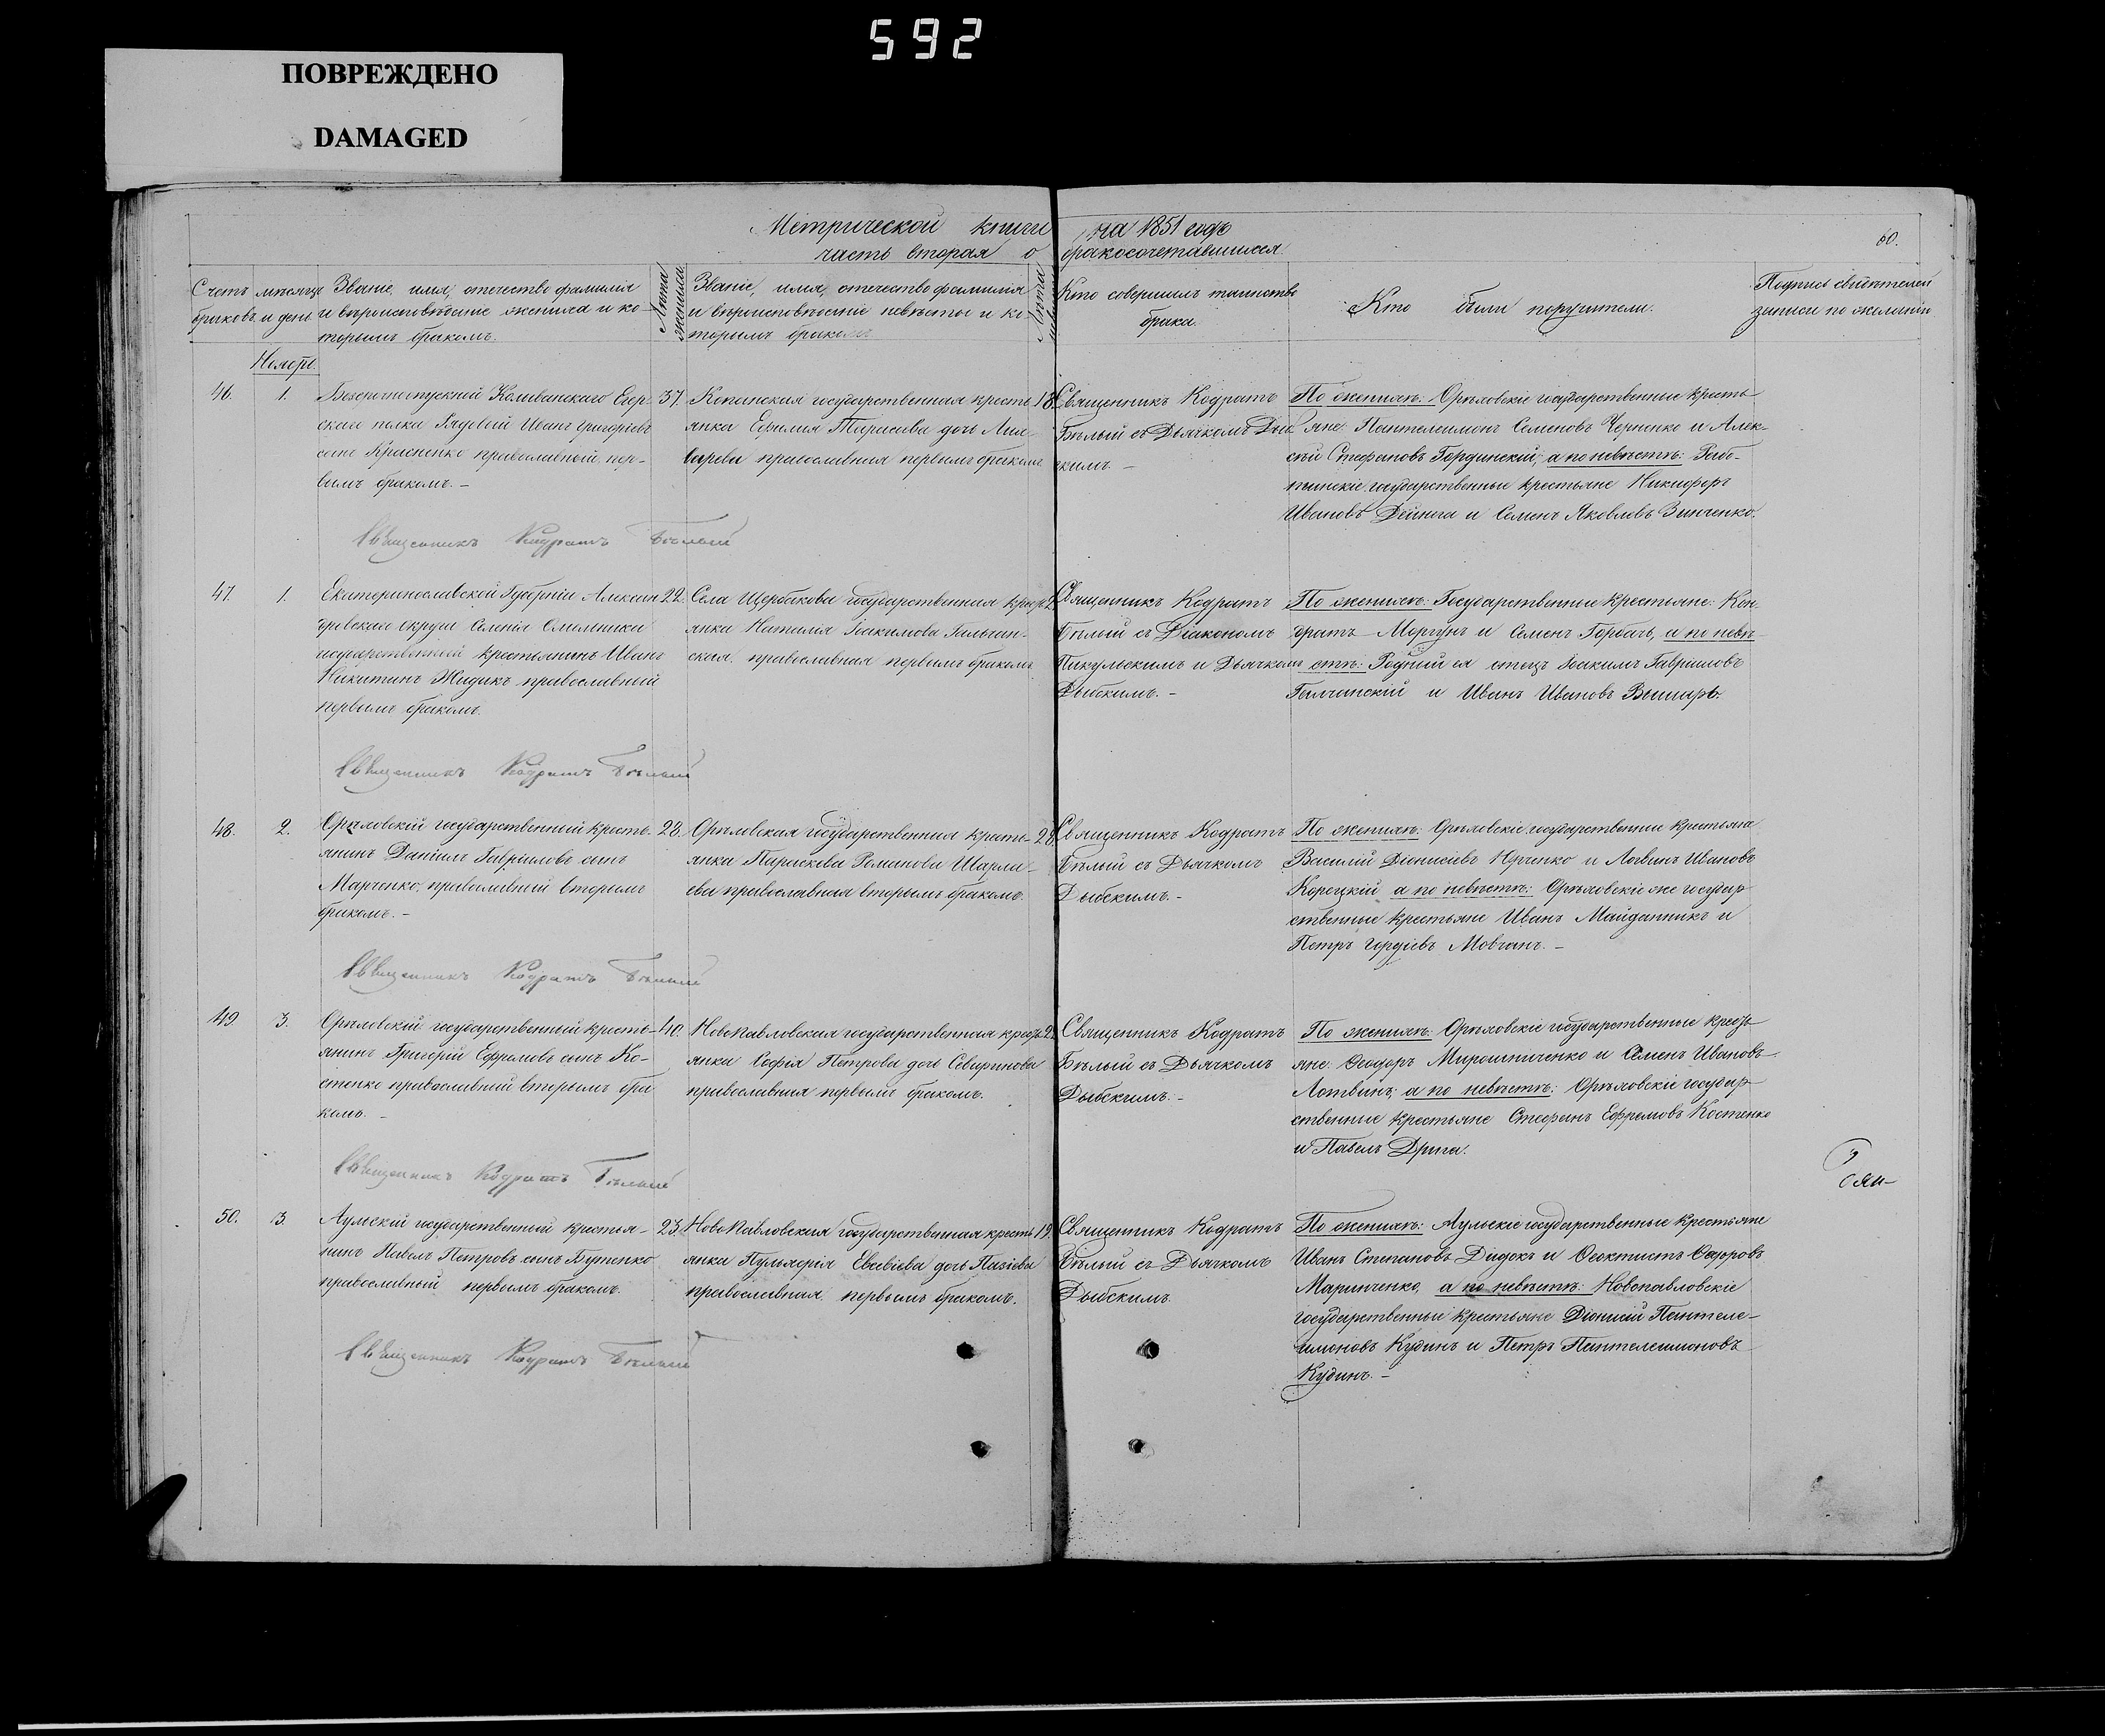 592
ПОВРЕЖДЕНО
DAMAGED
Метрической книги на 1851 годъ
часть вторая о бракосочетавшихся.
60.
Счетъ браковъ.
мѣсяцъ и день
Званіе, имя, отечество фамилія
и вѣроисповѣданіе жениха и ко-
торымъ бракомъ.
Лѣта жениха
Званіе, имя, отечество фамилія
и вѣроисповѣданіе невѣсты и ко-
торымъ бракомъ
Лѣта
Кто совершалъ таинство
брака.
Кто были поручители.
Подпись свидѣтелей
записи по желанію
Ноябрь.
46.
1.
Безсрочноотпускной Колыванскаго Егер-
скаго полка Рядовый Иванъ Григорьевъ
сынъ Красненко православный, пер-
вымъ бракомъ. –
37.
государственная кресть-
янка Евфимія Тарасова дочь
православная первымъ бракомъ
18.
Священникъ Кодратъ
Бѣлый съ Дьячкомъ Дыб-
скимъ. –
По женихѣ: Орѣловскіе государственные кресть-
яне: Пантелеимонъ Семеновъ Черненко и Алек-
сѣй Стефановъ Гординскій; а по невѣстѣ:
государственные крестьяне Никифоръ
Ивановъ Дейнега и Семенъ Яковлевъ Зинченко.
Священникъ Кодратъ Бѣлый
47.
1.
Екатеринославской Губерніи Алексан-
дровскаго округа Селенія
государственный крестьянинъ Иванъ
Никитинъ Жидикъ православный
первымъ бракомъ.
22.
Села Щербакова государственная крест-
янка Наталія Іоакимова Гальчан-
ская, православная первымъ бракомъ
Священникъ Кодратъ
Бѣлый съ Діакономъ
Пикульскимъ и Дьячкомъ
Дыбскимъ. –
По женихѣ: Государственные крестьяне: Кон-
дратъ Моргунъ и Семенъ Горбачь, а по невѣ-
стѣ: Родный ея отецъ Іоакимъ Гавриловъ
Галчанскій и Иванъ Ивановъ
Священникъ Кодратъ Бѣлый
48.
2.
Орѣловскій государственный кресть-
янинъ Даніилъ Гавріиловъ сынъ
Марченко, православный вторымъ
бракомъ. –
28.
Орѣловская государственная кресть-
янка Параскева Романова Шарла-
ева православная вторымъ бракомъ.
Священникъ Кодратъ
Бѣлый съ Дьячкомъ
Дыбскимъ. –
По женихѣ: Орѣловскіе государственные крестьяна
Василій Діонисіевъ Юрченко и Логвинъ Ивановъ
Корецкій а по невѣстѣ: Орѣловскіе же государ-
ственные крестьяне Иванъ Майданникъ и
Петръ Гордіевъ Мовчанъ. –
Священникъ Кодратъ Бѣлый
49.
3.
Орѣловскій государственный кресть-
янинъ Григорій Ефремовъ сынъ Ко-
стенко православный вторымъ бра-
комъ. –
40.
Новопавловская государственная крест-
янка Софія Петрова дочь Северинова
православная первымъ бракомъ.
Священникъ Кодратъ
Бѣлый съ Дьячкомъ
Дыбскимъ. –
По женихѣ: Орѣловскіе государственные кресть-
яне: Ѳеодоръ Мирошниченко и Семенъ Ивановъ
Лотвинъ; а по невѣстѣ: Орѣловскіе государ-
ственные крестьяне Стефанъ Ефремовъ Костенко
и Павелъ Дрига.
Священникъ Кодратъ Бѣлый
50.
3.
Аульскій государственный крестья-
нинъ Павелъ Петровъ сынъ Бутенко
православный первымъ бракомъ.
23.
Новопавловская государственная кресть-
янка Пульхерія Евсевіева дочь
православная, первымъ бракомъ.
19.
Священникъ Кодратъ
Бѣлый съ Дьячкомъ
Дыбскимъ.
По женихѣ: Аульскіе государственные крестьяне
Иванъ Степановъ Дидокъ и Ѳеоктистъ Ѳедоровъ
Маринченко, а по невѣстѣ: Новопавловскіе
государственные крестьяне Діонисій Пантеле-
имоновъ Кудинъ и Петръ Пантелеимоновъ
Кудинъ. –
Священникъ Кодратъ Бѣлый